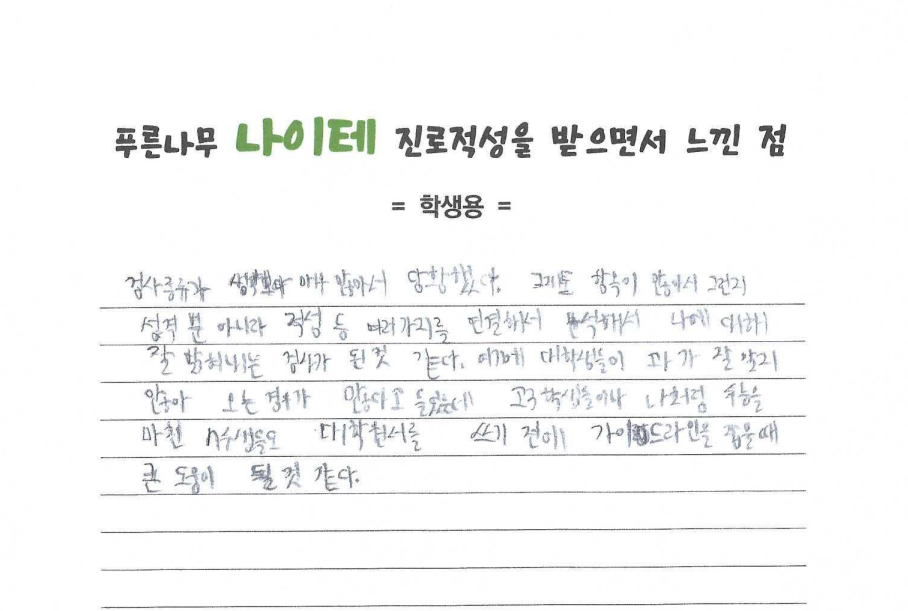 푸른나무 나이테 진로적성을 받으면서 느낀 점
= 학생용 =
검사종류가 생각보다 많아서 당황했다. 그래도 항목이 많아서 그런지
성격 뿐 아니라 적성 등 여러가지를 연결해서 분석해서 나에 대해
잘 밝혀내는 검사가 된 것 같다. 대학생들이 과가 잘 맞지
않아 오는 경우가 많다고 들었는데 고3 학생들이나 나처럼 수능을
마친 N수생들도 대학원서를 쓰기 전에 가이드라인을 잡을 때
큰 도움이 될 것 같다.